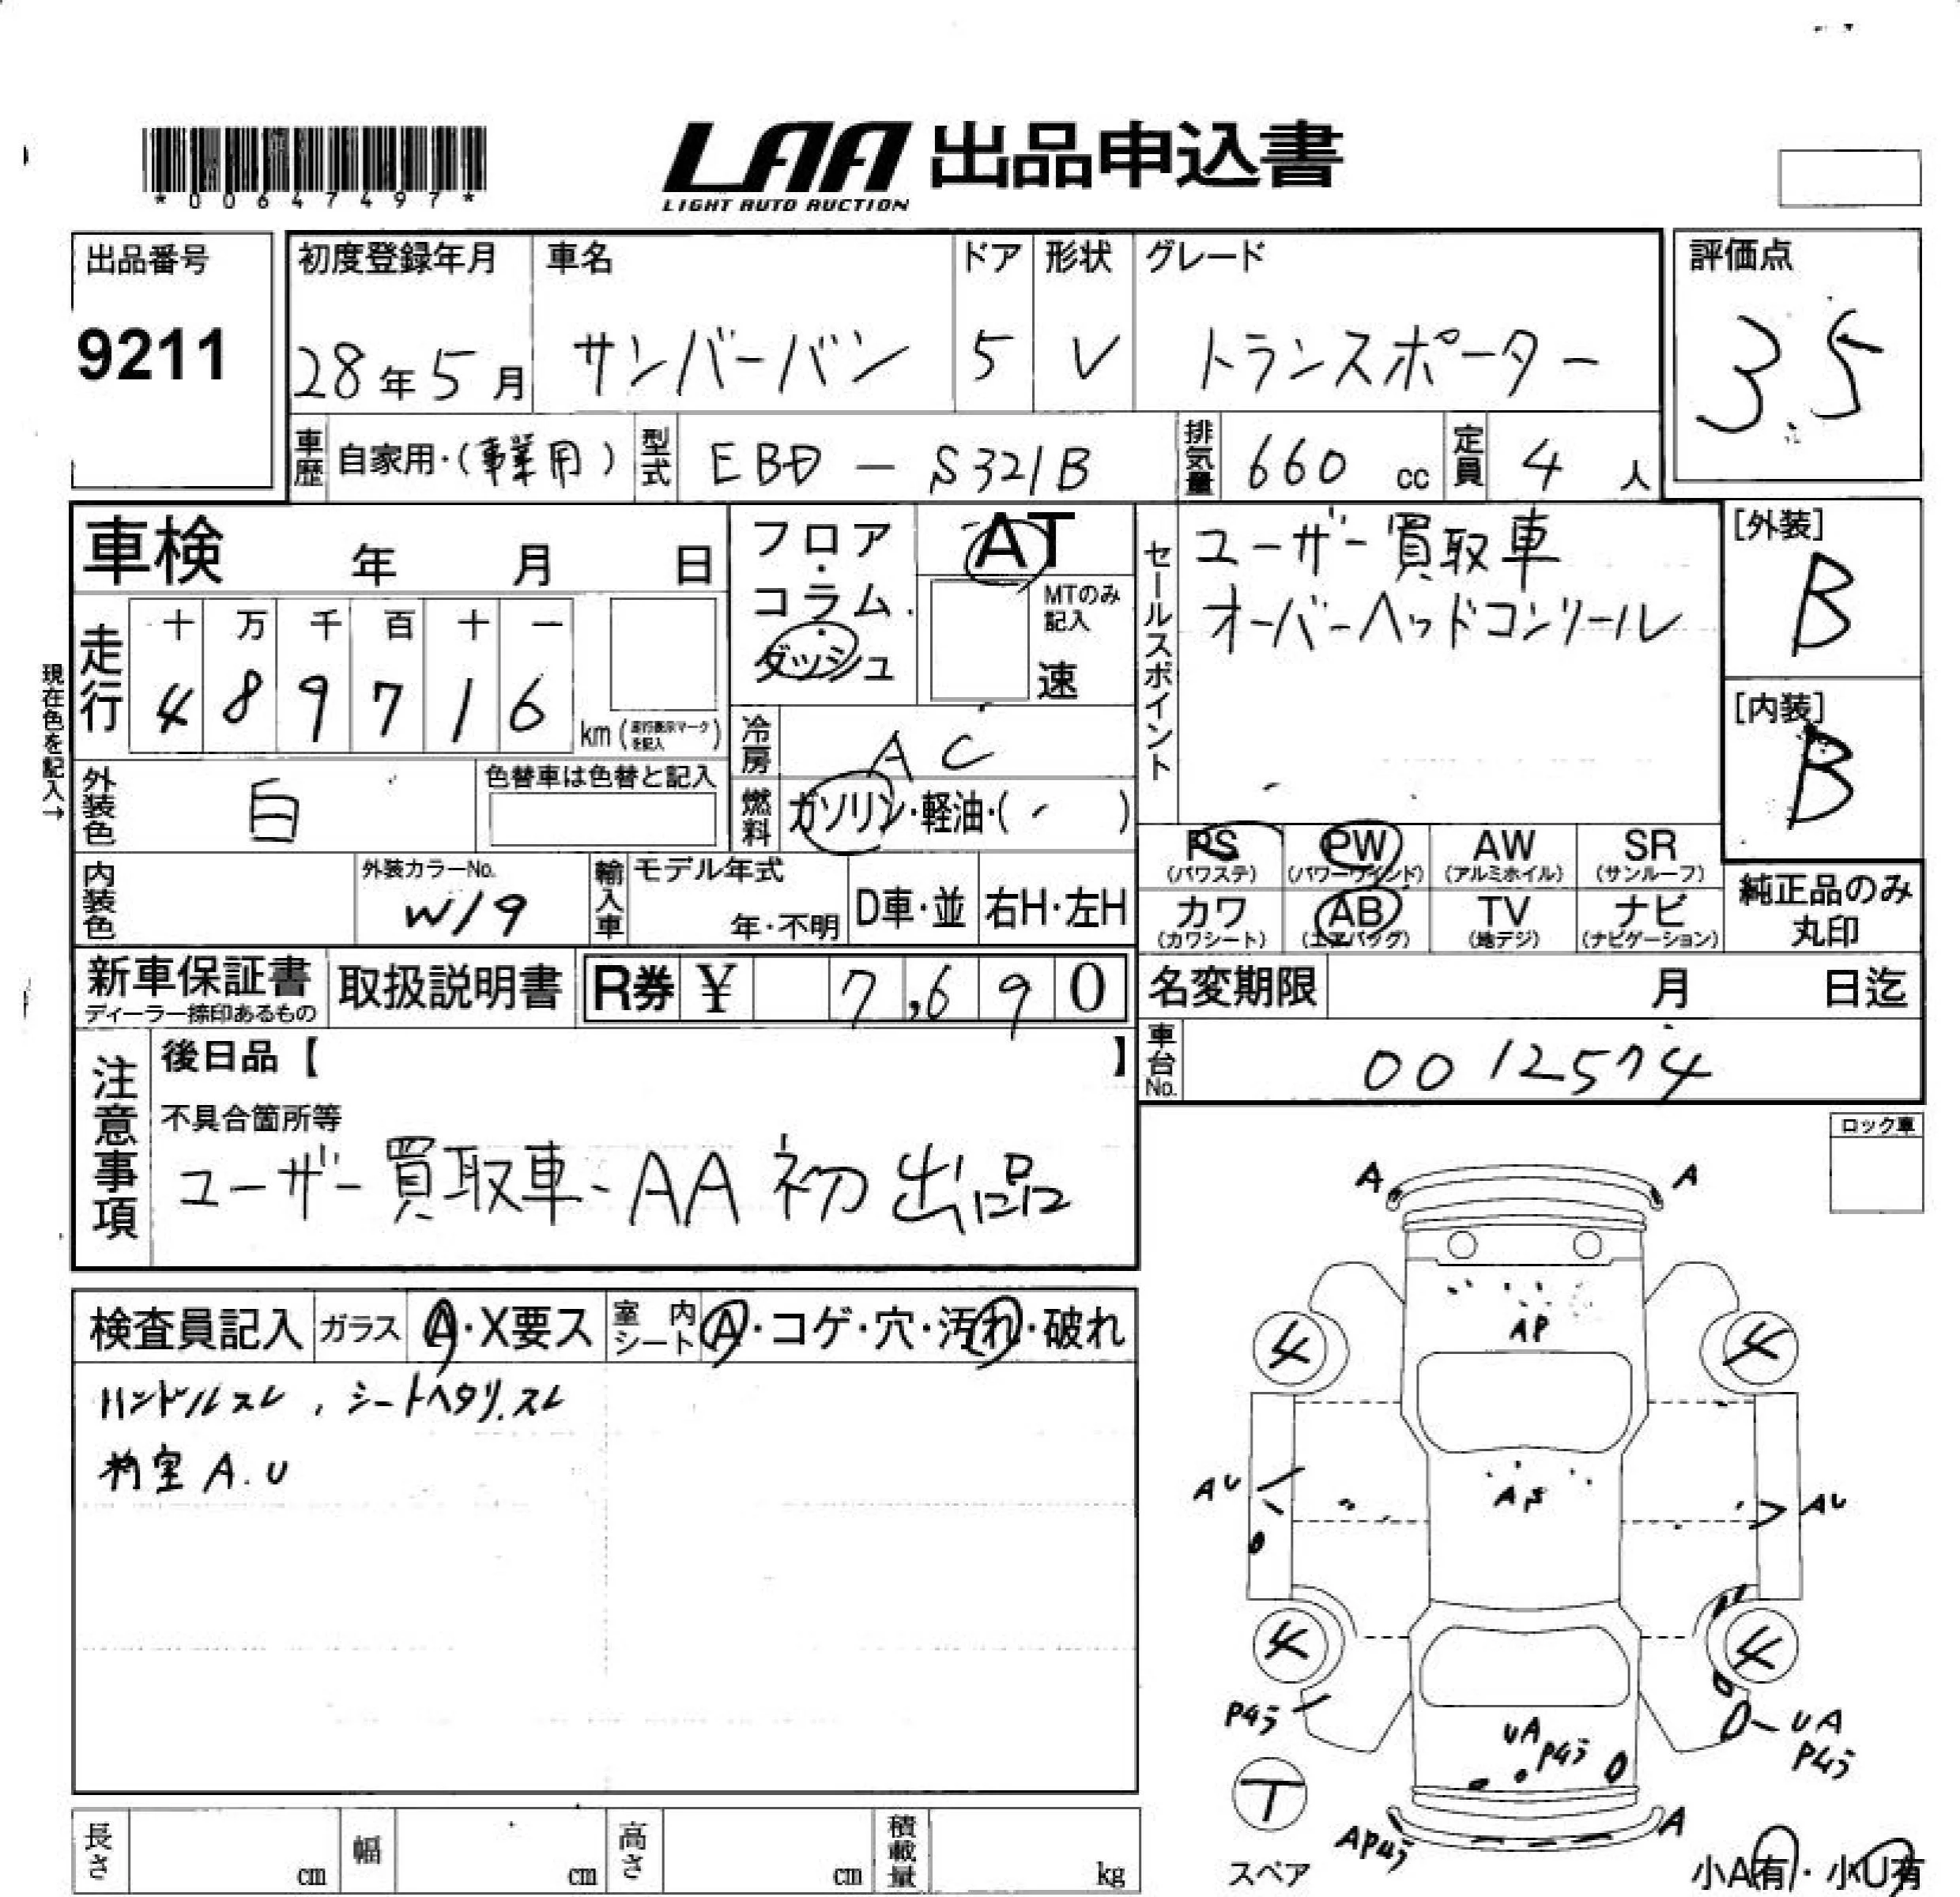 *00647497*
LAA 出品申込書
LIGHT AUTO AUCTION
出品番号
9211
初度登録年月 車名 ドア 形状 グレード
28年5月 サンバーバン 5 V トランスポーター
評価点
3.5
車歴 自家用・(事業用) 型式 EBD - S321B 排気量 660 cc 定員 4 人
車検 年 月 日
フロア・コラム・ダッシュ
AT
MTのみ記入
速
セールスポイント
ユーザー買取車
オーバーヘッドコンソール
[外装]
B
[内装]
B
現在色を記入→
走行
十 万 千 百 十 一
4 8 9 7 1 6 km (走行表示マークを記入)
冷房 AC
燃料 ガソリン・軽油・( )
外装色 白
色替車は色替と記入
内装色
外装カラーNo.
W19
輸入車
モデル年式
年・不明
D車・並 右H・左H
PS (パワステ) PW (パワーウィンド) AW (アルミホイル) SR (サンルーフ)
カワ (カワシート) AB (エアバッグ) TV (地デジ) ナビ (ナビゲーション)
純正品のみ
丸印
新車保証書
ディーラー捺印あるもの
取扱説明書
R券 ¥ 7,690
名変期限 月 日迄
車台No. 0012574
注意事項
後日品【 】
不具合箇所等
ユーザー買取車、AA初出品
ロック車
検査員記入 ガラス A・X要ス 室内シート A・コゲ・穴・汚れ・破れ
ハンドルスレ、シートヘタリ、スレ
A.U
A A
AP
4 4
AU AU
4 4
UA
UA
A
T
スペア
小A有・小U有
長さ cm 幅 cm 高さ cm 積載量 kg